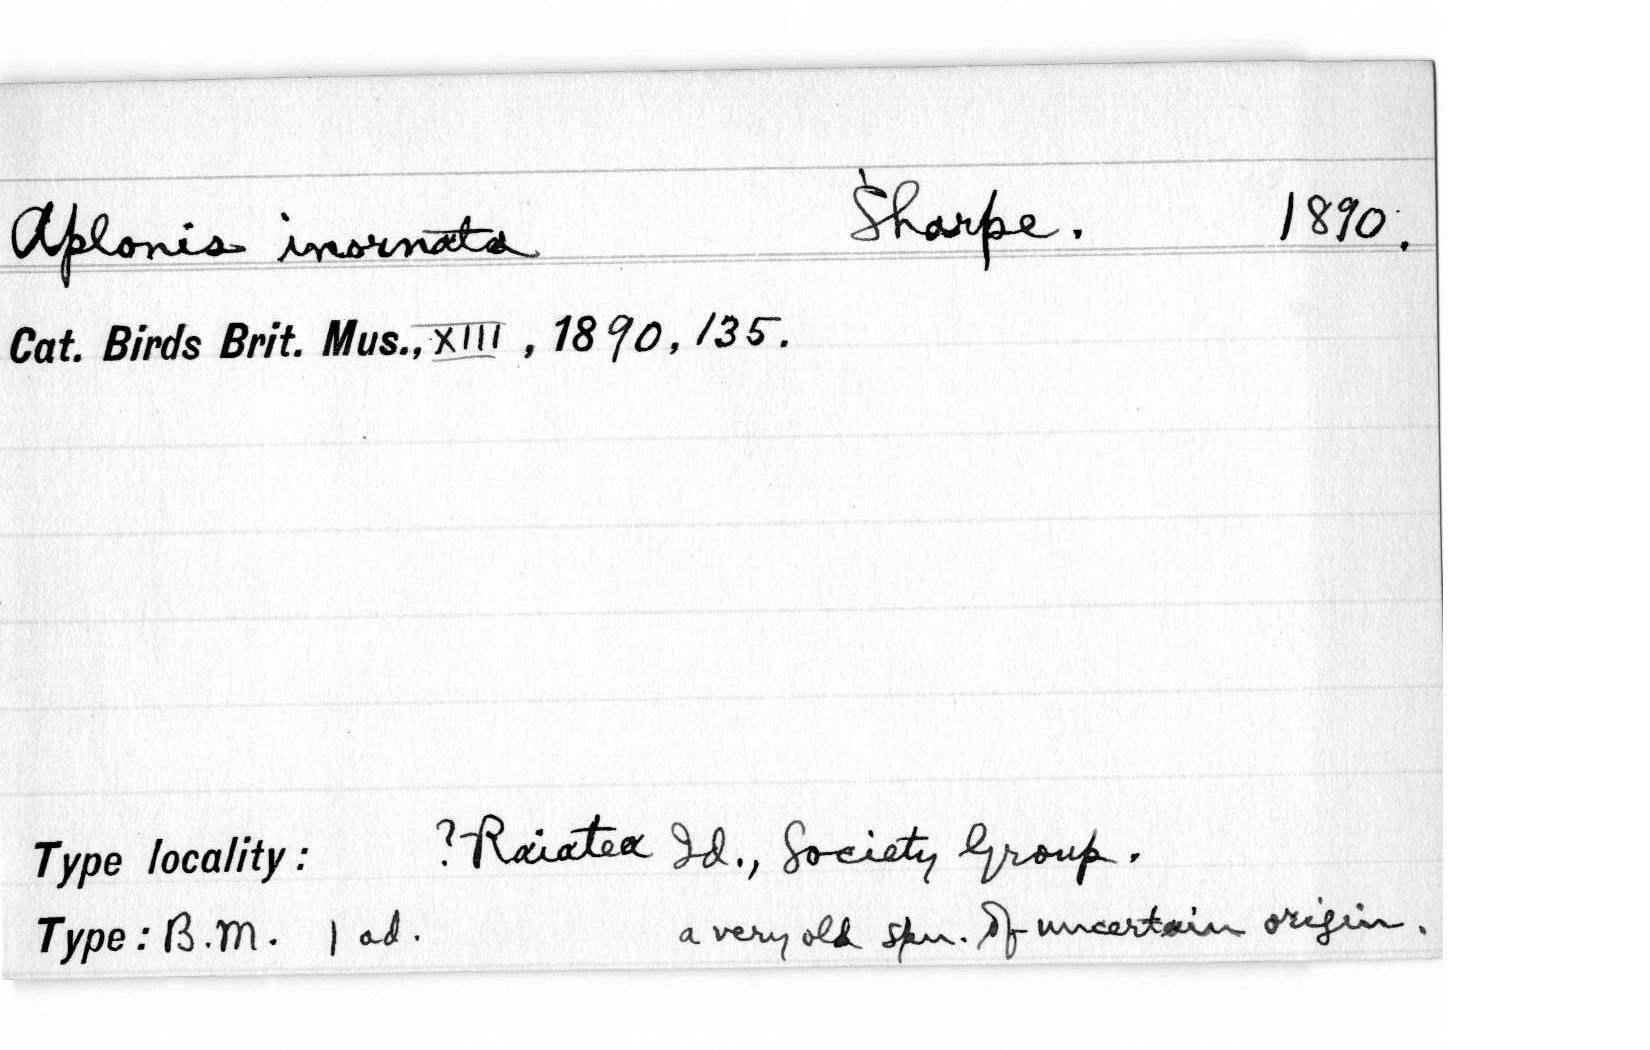 Aplonis inornata Sharpe. 1890.
Cat. Birds Brit. Mus., XIII, 1890, 135.
Type locality: ?Raiatea Id., Society Group.
Type: B.M. 1 ad. a very old spn. of uncertain origin.